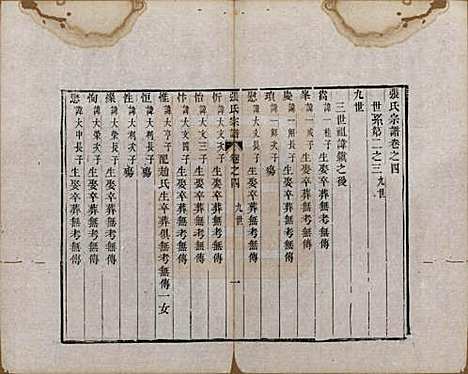 張氏宗譜卷之四
世系第二之三 九世
九世
三世祖諱鐵之後
嵩 諱一桂子 生娶卒葬無考無傳
峯 諱一成子 生娶卒葬無考無傳
慶 諱一鯤長子 生娶卒葬無考無傳
瑣 諱一鯤次子 殤
慰 諱大文長子 生娶卒葬無考無傳
張氏宗譜 卷之四 九世 一
忻 諱大文次子 生娶卒葬無考無傳
怡 諱大文三子 生娶卒葬無考無傳
忭 諱大文四子 生娶卒葬無考無傳
惟 諱大亨子 配趙氏生卒葬俱無考無傳一女
恒 諱大利長子 殤
性 諱大利次子 殤
諱大業長子 生娶卒葬無考無傳
恂 諱大業次子 生娶卒葬無考無傳
諱大申長子 生娶卒葬無考無傳